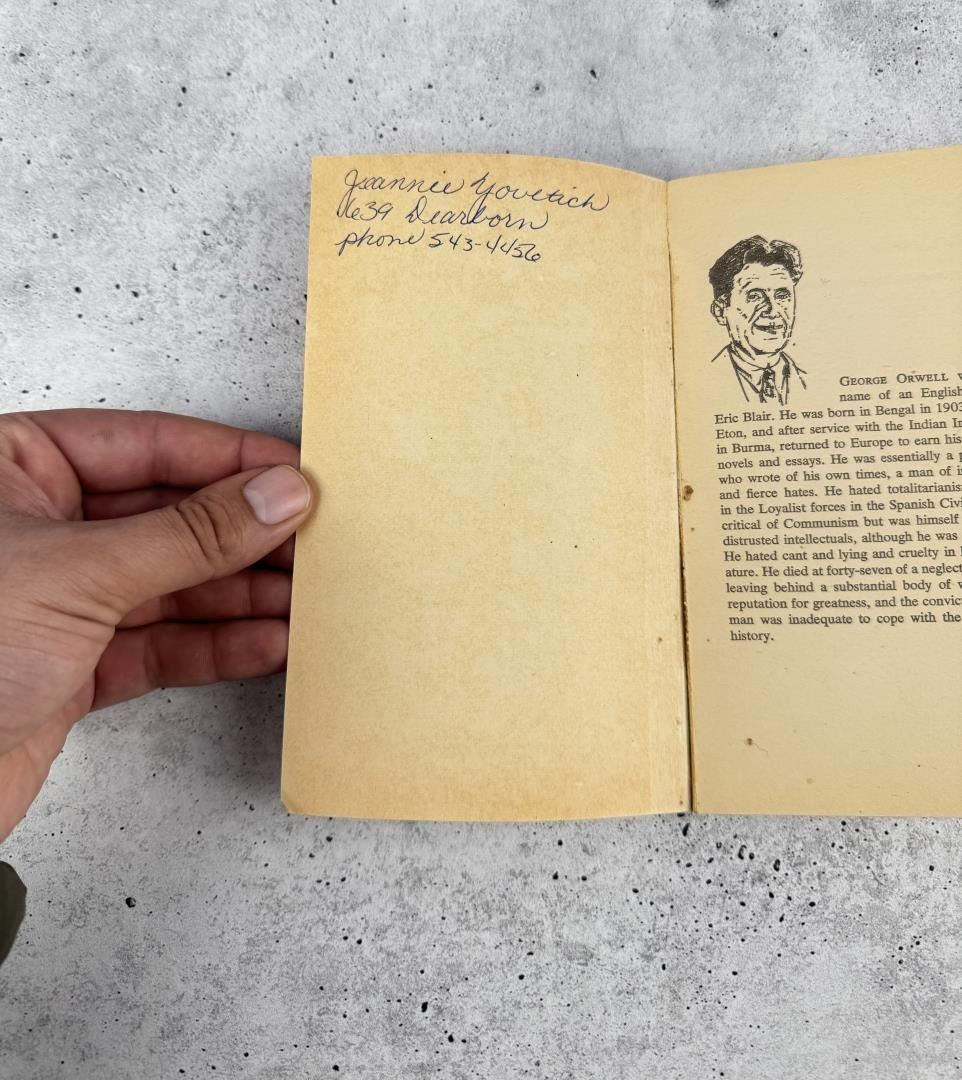 Jeannie Yovetich
1639 Dearborn
phone 543-4456
GEORGE ORWELL
name of an English
Eric Blair. He was born in Bengal in 1903
Eton, and after service with the Indian
in Burma, returned to Europe to earn his
novels and essays. He was essentially a
who wrote of his own times, a man of
and fierce hates. He hated
in the Loyalist forces in the Spanish
critical of Communism but was himself
distrusted intellectuals, although he was
He hated cant and lying and cruelty in
ature. He died at forty-seven of a
leaving behind a substantial body of
reputation for greatness, and the
man was inadequate to cope with the
history.